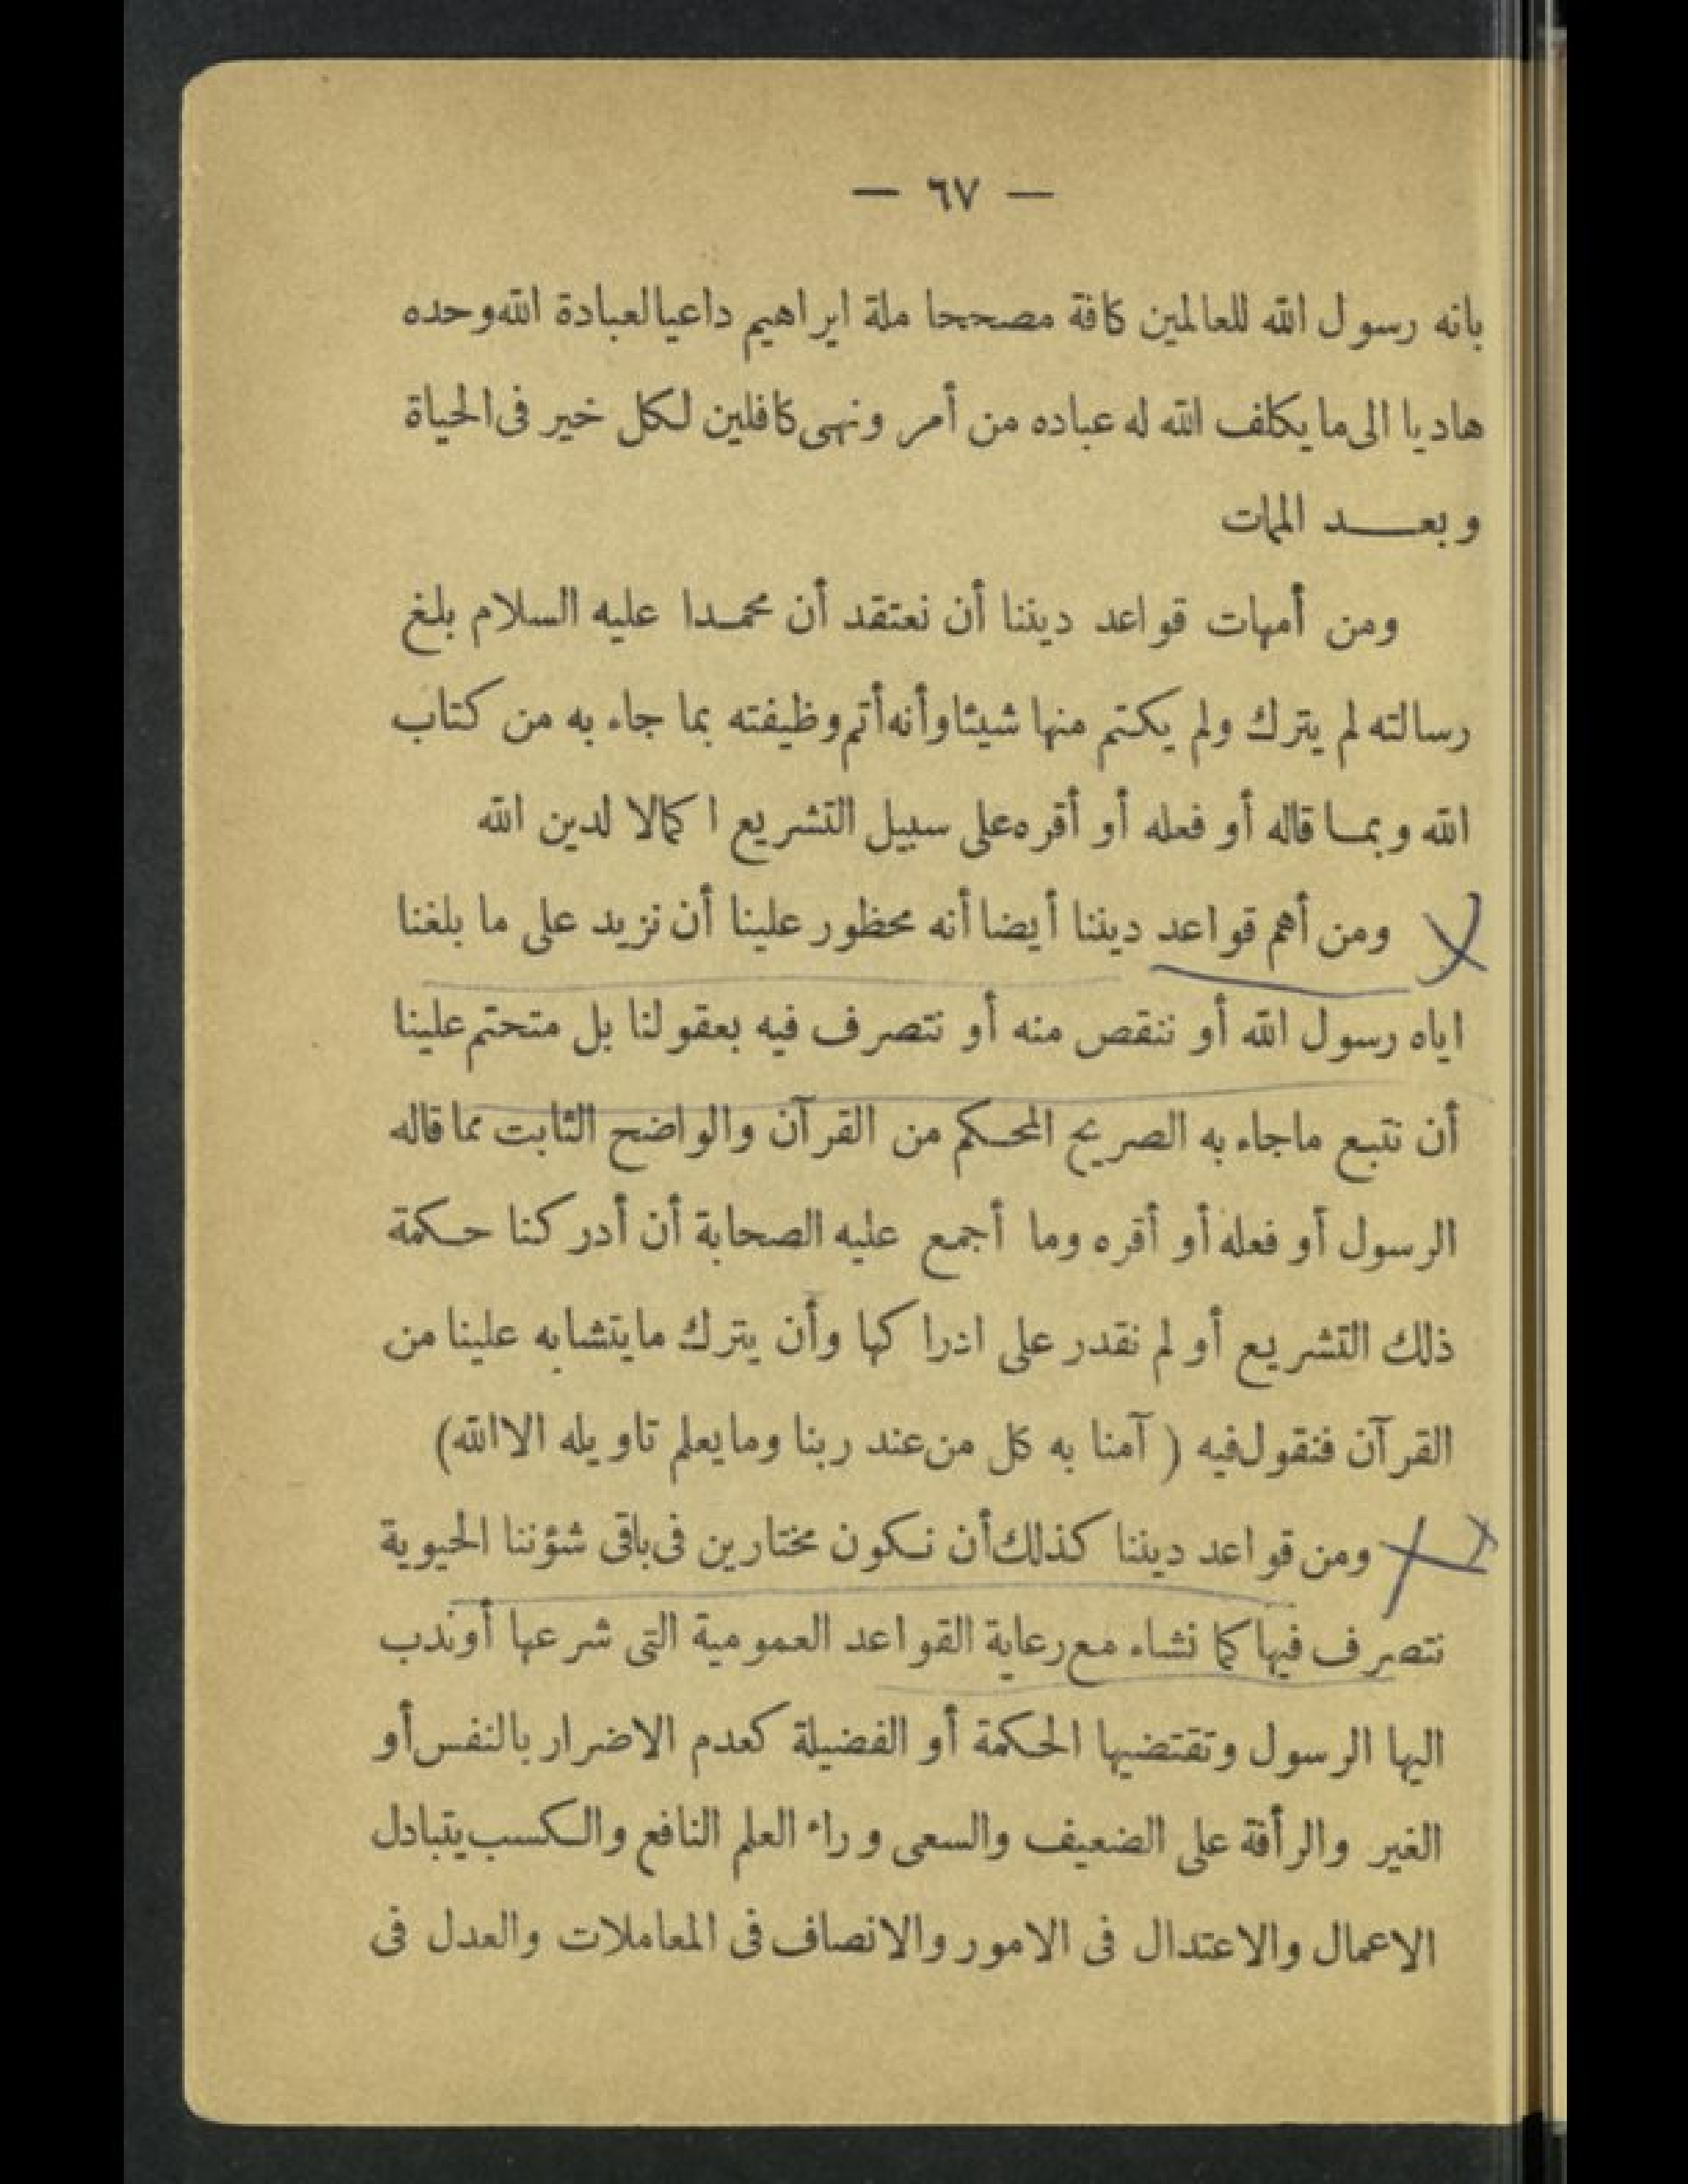 — ٦٧ —
بانه رسول الله للعالمين كافة مصححا ملة ابراهيم داعيا لعبادة الله وحده
هاديا الى ما يكلف الله له عباده من أمر ونهى كافلين لكل خير فى الحياة
وبعد الممات
ومن أمهات قواعد ديننا أن نعتقد أن محمدا عليه السلام بلغ
رسالته لم يترك ولم يكتم منها شيئا وأنه أتم وظيفته بما جاء به من كتاب
الله وبما قاله أو فعله أو أقره على سبيل التشريع اكمالا لدين الله
ومن أهم قواعد ديننا أيضا أنه محظور علينا أن نزيد على ما بلغنا
اياه رسول الله أو ننقص منه أو نتصرف فيه بعقولنا بل متحتم علينا
أن نتبع ماجاء به الصريح المحكم من القرآن والواضح الثابت مما قاله
الرسول أو فعله أو أقره وما أجمع عليه الصحابة أن أدركنا حكمة
ذلك التشريع أو لم نقدر على ادراكها وأن يترك مايتشابه علينا من
القرآن فنقول فيه ( آمنا به كل من عند ربنا وما يعلم تاويله الا الله)
ومن قواعد ديننا كذلك أن نكون مختارين فى باقى شؤننا الحيوية
نتصرف فيها كما نشاء مع رعاية القواعد العمومية التى شرعها أو ندب
اليها الرسول وتقتضيها الحكمة أو الفضيلة كعدم الاضرار بالنفس أو
الغير والرأفة على الضعيف والسعى وراء العلم النافع والكسب يتبادل
الاعمال والاعتدال فى الامور والانصاف فى المعاملات والعدل فى